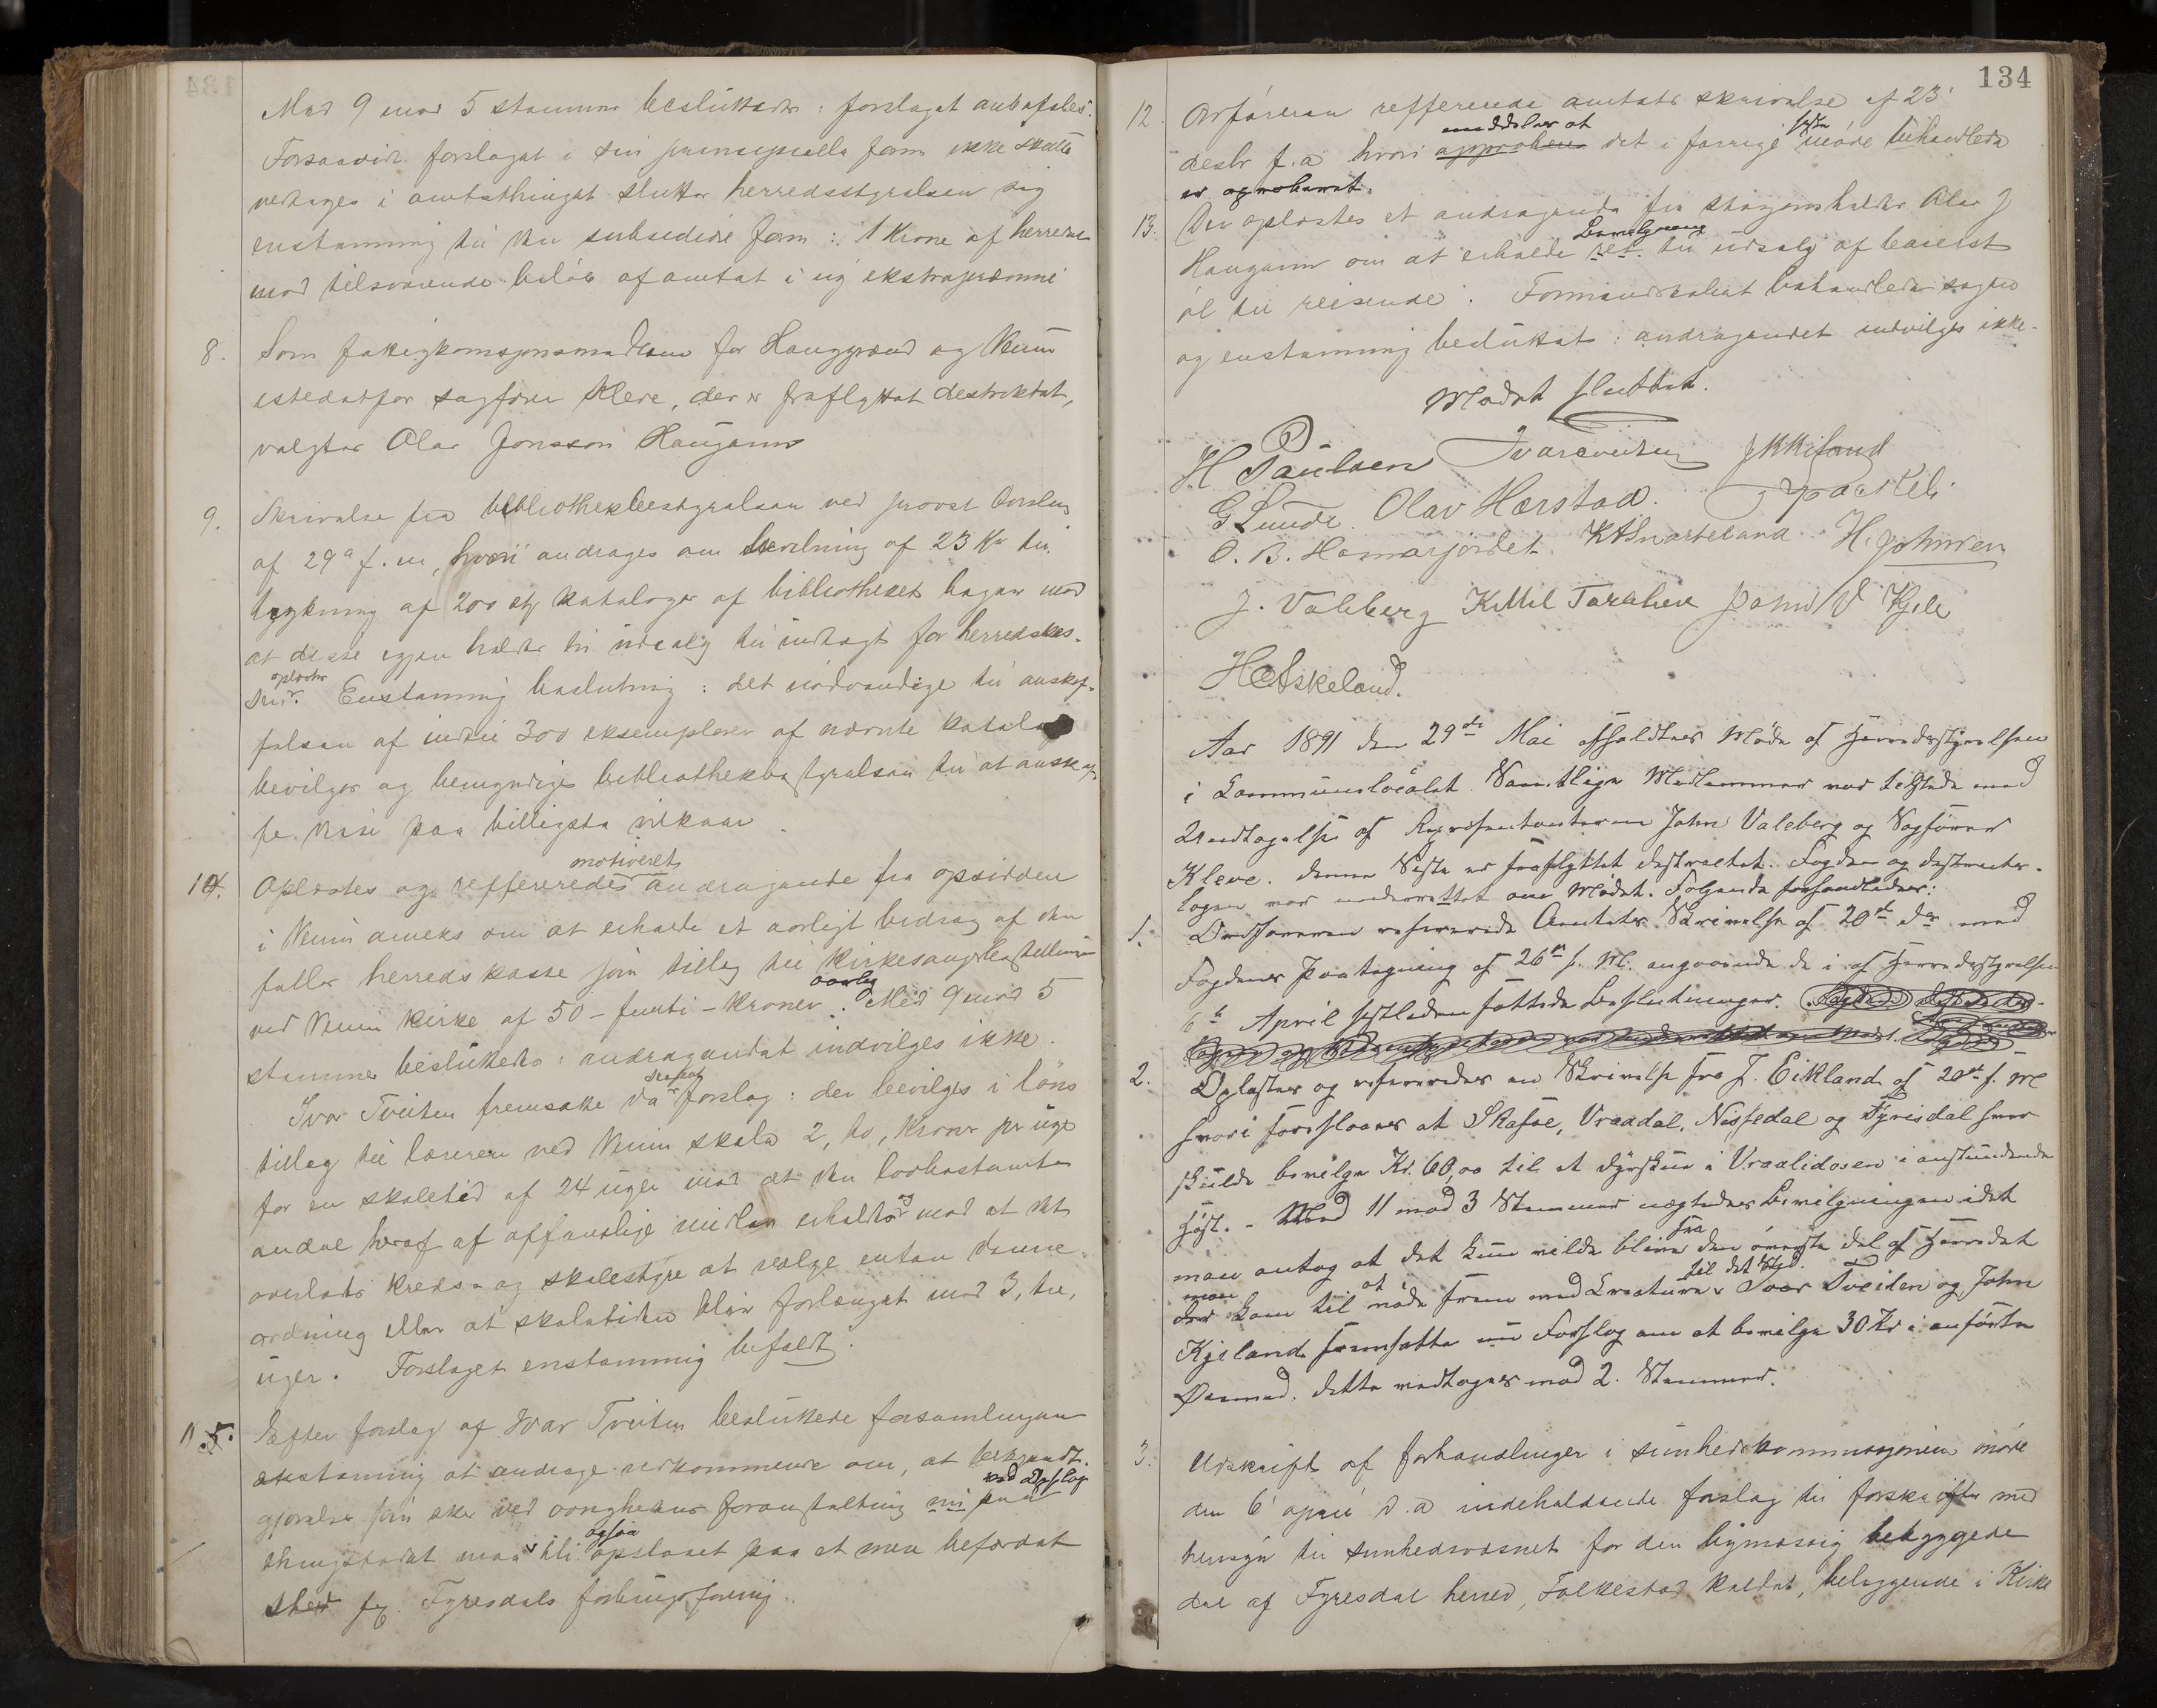 Med 9 mod 5 stemmer besluttedes: forslaget anbefales.
Forsaavidt forslaget i sin principielle form ikke skulle
vedtages i amtsthinget slutter herredsstyrelsen sig
enstemmig til den subsediære form: 1 Krone af herredet
mod tilsvarende beløb af amtet i ny ekstrapræmie
8. Som fattigkomsjonsmedlem for Hauggrænd og Veum
istedetfor sagfører Kleve, der er fraflyttet destriktet,
valgtes Olav Jonsson Haugann
9. Skrivelse fra bibliotheksbestyrelsen ved provst Orslen
af 29de f.m, hvori andrages om bevilning af 23 Kr til
trykning af 200 stk kataloger af bibliotheket bøger mod
at disse igjen holdes til udsalg til indtægt for herredskas-
sen oplæstes. Enstemmig beslutning: det nødvendige til anskaf-
felsen af indtil 300 eksemplarer af nævnte katalog
bevilges og bemyndiges bibliotheksbestyrelsen til at anskaf-
fe disse paa billigste vilkaar.
10. Oplæstes og reffereredes motiveret andragende fra opsidden
i Veum anneks om at erholde et aarligt bidrag af den
fælles herredskasse som tillæg til kirkesangerbestillingen
ved Veum kirke af 50 - femti - kroner aarlig. Med 9 mod 5
stemmer besluttedes: andragendet indvilges ikke.
Ivar Tveiten fremsatte da saadant forslag: der bevilges i løns
tillæg til læreren ved Veum skole 2, to, Kroner pr uge
for en skoletid af 24 uger mod at den lovbestemte
andel heraf af offentlige midler erholdes og mod at det
overlades kredsen og skolestyre at vælge enten denne
ordning eller at skoletiden blir forlænget med 3, tre,
uger. Forslaget enstemmig bifaldt.
11. Efter forslag af Ivar Tveiten besluttede forsamlingen
enstemmig at andrage vedkommende om, at bekjendt-
gjørelser som sker ved øvrighedens foranstaltning ved opslag paa
thingstedet maa bli ogsaa opslaaet paa et mere befærdet
sted f.eks. Fyresdals forbrugsforening.
134
12. Ordføreren reffererede amtets skrivelse af 23'
desbr f.a hvori meddeles at det i forrige møde behandlede
er approberet.
13. Der oplæstes et andragende fra skogsmholder Olav J
Haugann om at erholde Bevilgning til udsalg af baierst
øl til reisende. Formandskabet behandlede sagen
og enstemmig besluttet: andragendet indvilges ikke.
Mødet sluttet.
H Paulsen Ivar Tveiten J K Kiland
G Lunde. Olav Hærstad.
O. B. Hamarjordet. K A Snarteland H. Johnsen
J. Valeberg Kittil Taraldlien John V Kjele
H Askeland.
Aar 1891 den 29de Mai afholdtes Møde af Herredsstyrelsen
i Communelocalet. Samtlige Medlemmer var tilstede med
Undtagelse af Repræsentanterne John Valeberg og Sagfører
Kleve. denne Sidste er fraflyttet destrictet. Fogden og destricts-
lægen var underrettet om Mødet. Følgende forhandledes:
1. Ordføreren refererede Amtets Skrivelse af 20de ds med
Fogdens Paategning af 26de s. M. angaaende de i af Herredsstyrelsen
6te April sidstleden fattede Beslutninger.
2. Oplæstes og refereredes en Skrivelse fra J. Eikland af 20de f. M
hvori foreslaaes at Skafsæ, Vraadal, Nissedal og Fyrisdal hver
skulde bevilge Kr. 60,00 til et dyrskue i Vraalidosen i anstundende
Høst. - Med 11 mod 3 Stemmer negtedes Bevilgningen idet
man antog at det kun vilde blive fra den øverste del af Herredet
man kom til at møde frem med Creature til det Sted. Ivar Tveiten og John
Kjeland fremsatte nu Forslag om at bevilge 30 Kr i anførte
Øiemed. dette vedtoges mod 2. Stemmer.
3. Udskrift af forhandlinger i sundhedskommisjonen møde
den 6' april d.a indeholdende forslag til forskrifter med
hensyn til sundhedsvæsnet for den bymæssig bebyggede
del af Fyresdal herred, Folkestad kaldet, beliggende i Kirke